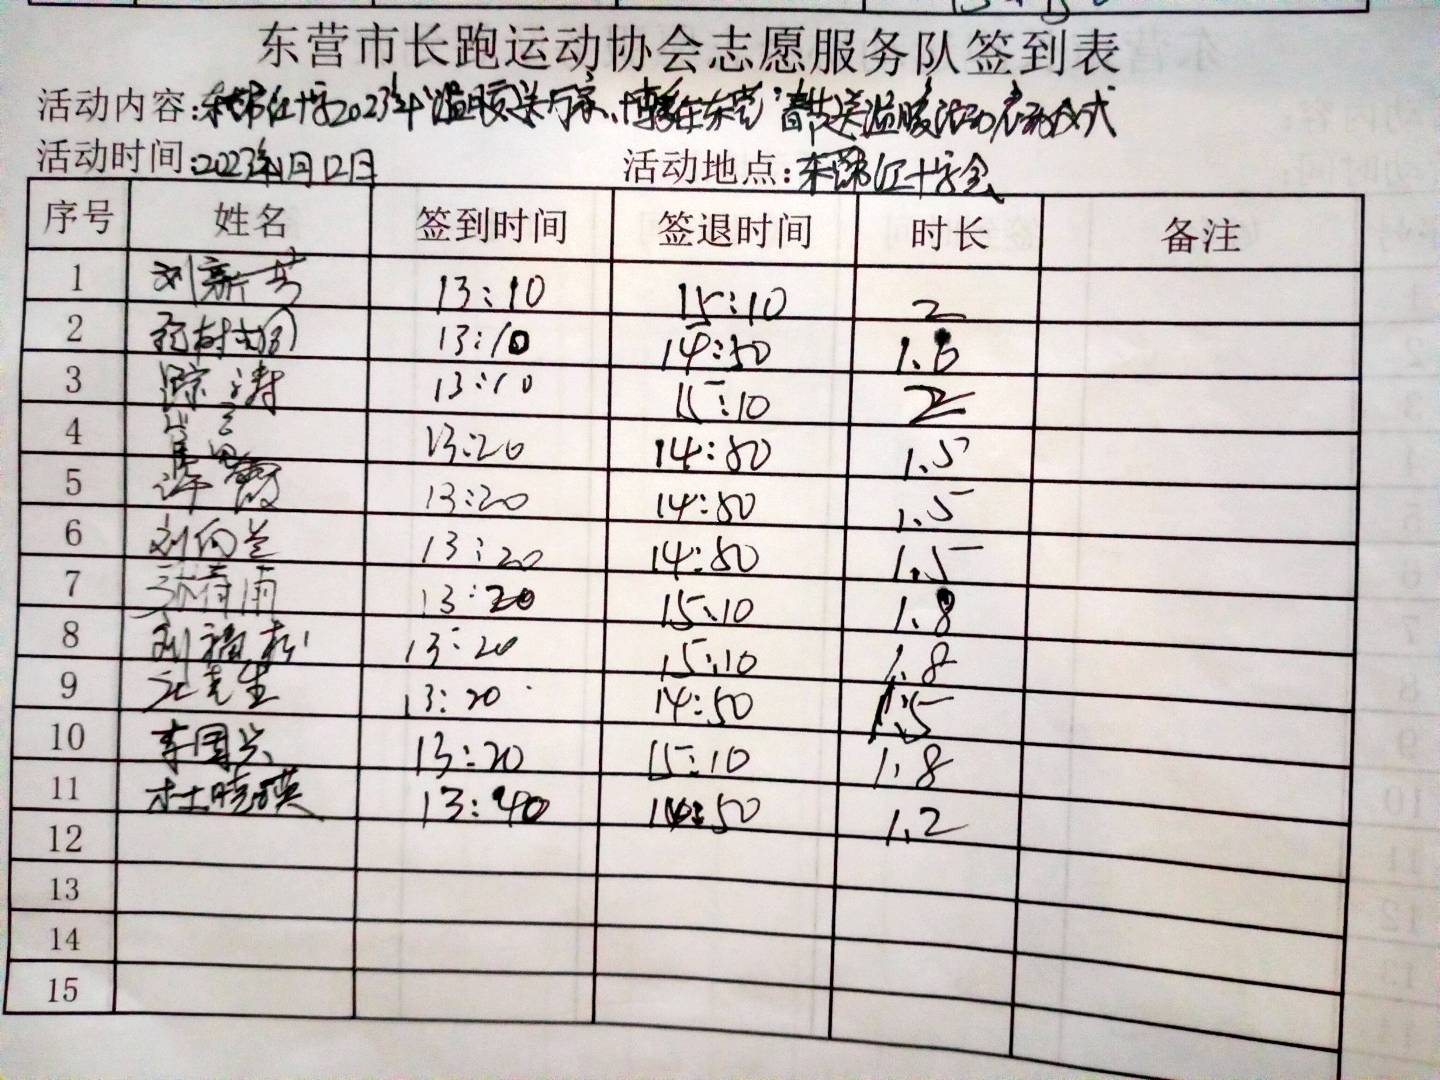 东营市长跑运动协会志愿服务队签到表
活动内容:东营市红十字2023年"温暖送万家、博爱在东营"春节送温暖活动启动仪式
活动时间:2023年1月12日 活动地点:东营市红十字会
序号 姓名 签到时间 签退时间 时长 备注
1 刘新芳 13:10 15:10 2
2 13:10 14:50 1.6
3 涛 13:10 15:10 2
4 13:20 14:50 1.5
5 许霞 13:20 14:50 1.5
6 刘向兰 13:20 14:50 1.5
7 雨 13:20 15:10 1.8
8 刘福松 13:20 15:10 1.8
9 13:20 14:50 1.5
10 李国兴 13:20 15:10 1.8
11 杜晓英 13:40 14:50 1.2
12
13
14
15